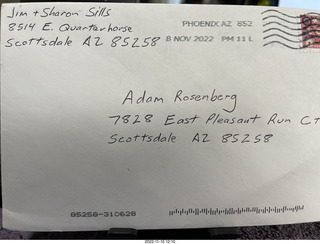 Jim + Sharon Sills
8514 E. Quarterhorse
Scottsdale AZ 85258
PHOENIX AZ 852
8 NOV 2022 PM 11 L
Adam Rosenberg
7828 East Pleasant Run Ct
Scottsdale AZ 85258
85258-310628
2022-11-15 12:10